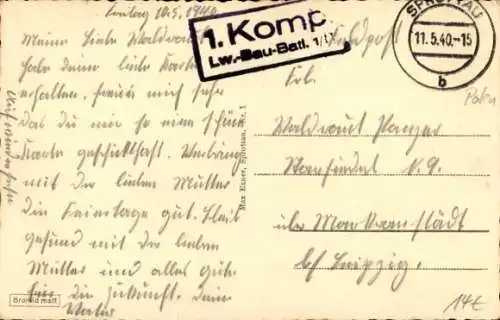 Freitag 10.5.1940
Meine liebe Waldraut
habe deine liebe Karte
erhalten. Freue mich sehr
das du mir so eine schöne
Karte geschickt hast. Verbringe
mit der lieben Mutter
die Feiertage gut. Bleib
gesund mit der lieben
Mutter und alles gute
für die Zukunft. Dein
Vater
Auf Wiedersehen
1. Komp.
Lw.-Bau-Batl.
Feldpost
SPROTTAU
11.5.40.-15
b
Frl.
Waldraut Panzer
N. 9.
über Markranstädt
bei Leipzig.
Max Exner, Sprottau, Nr. 1
Bromid matt
Polen
14€